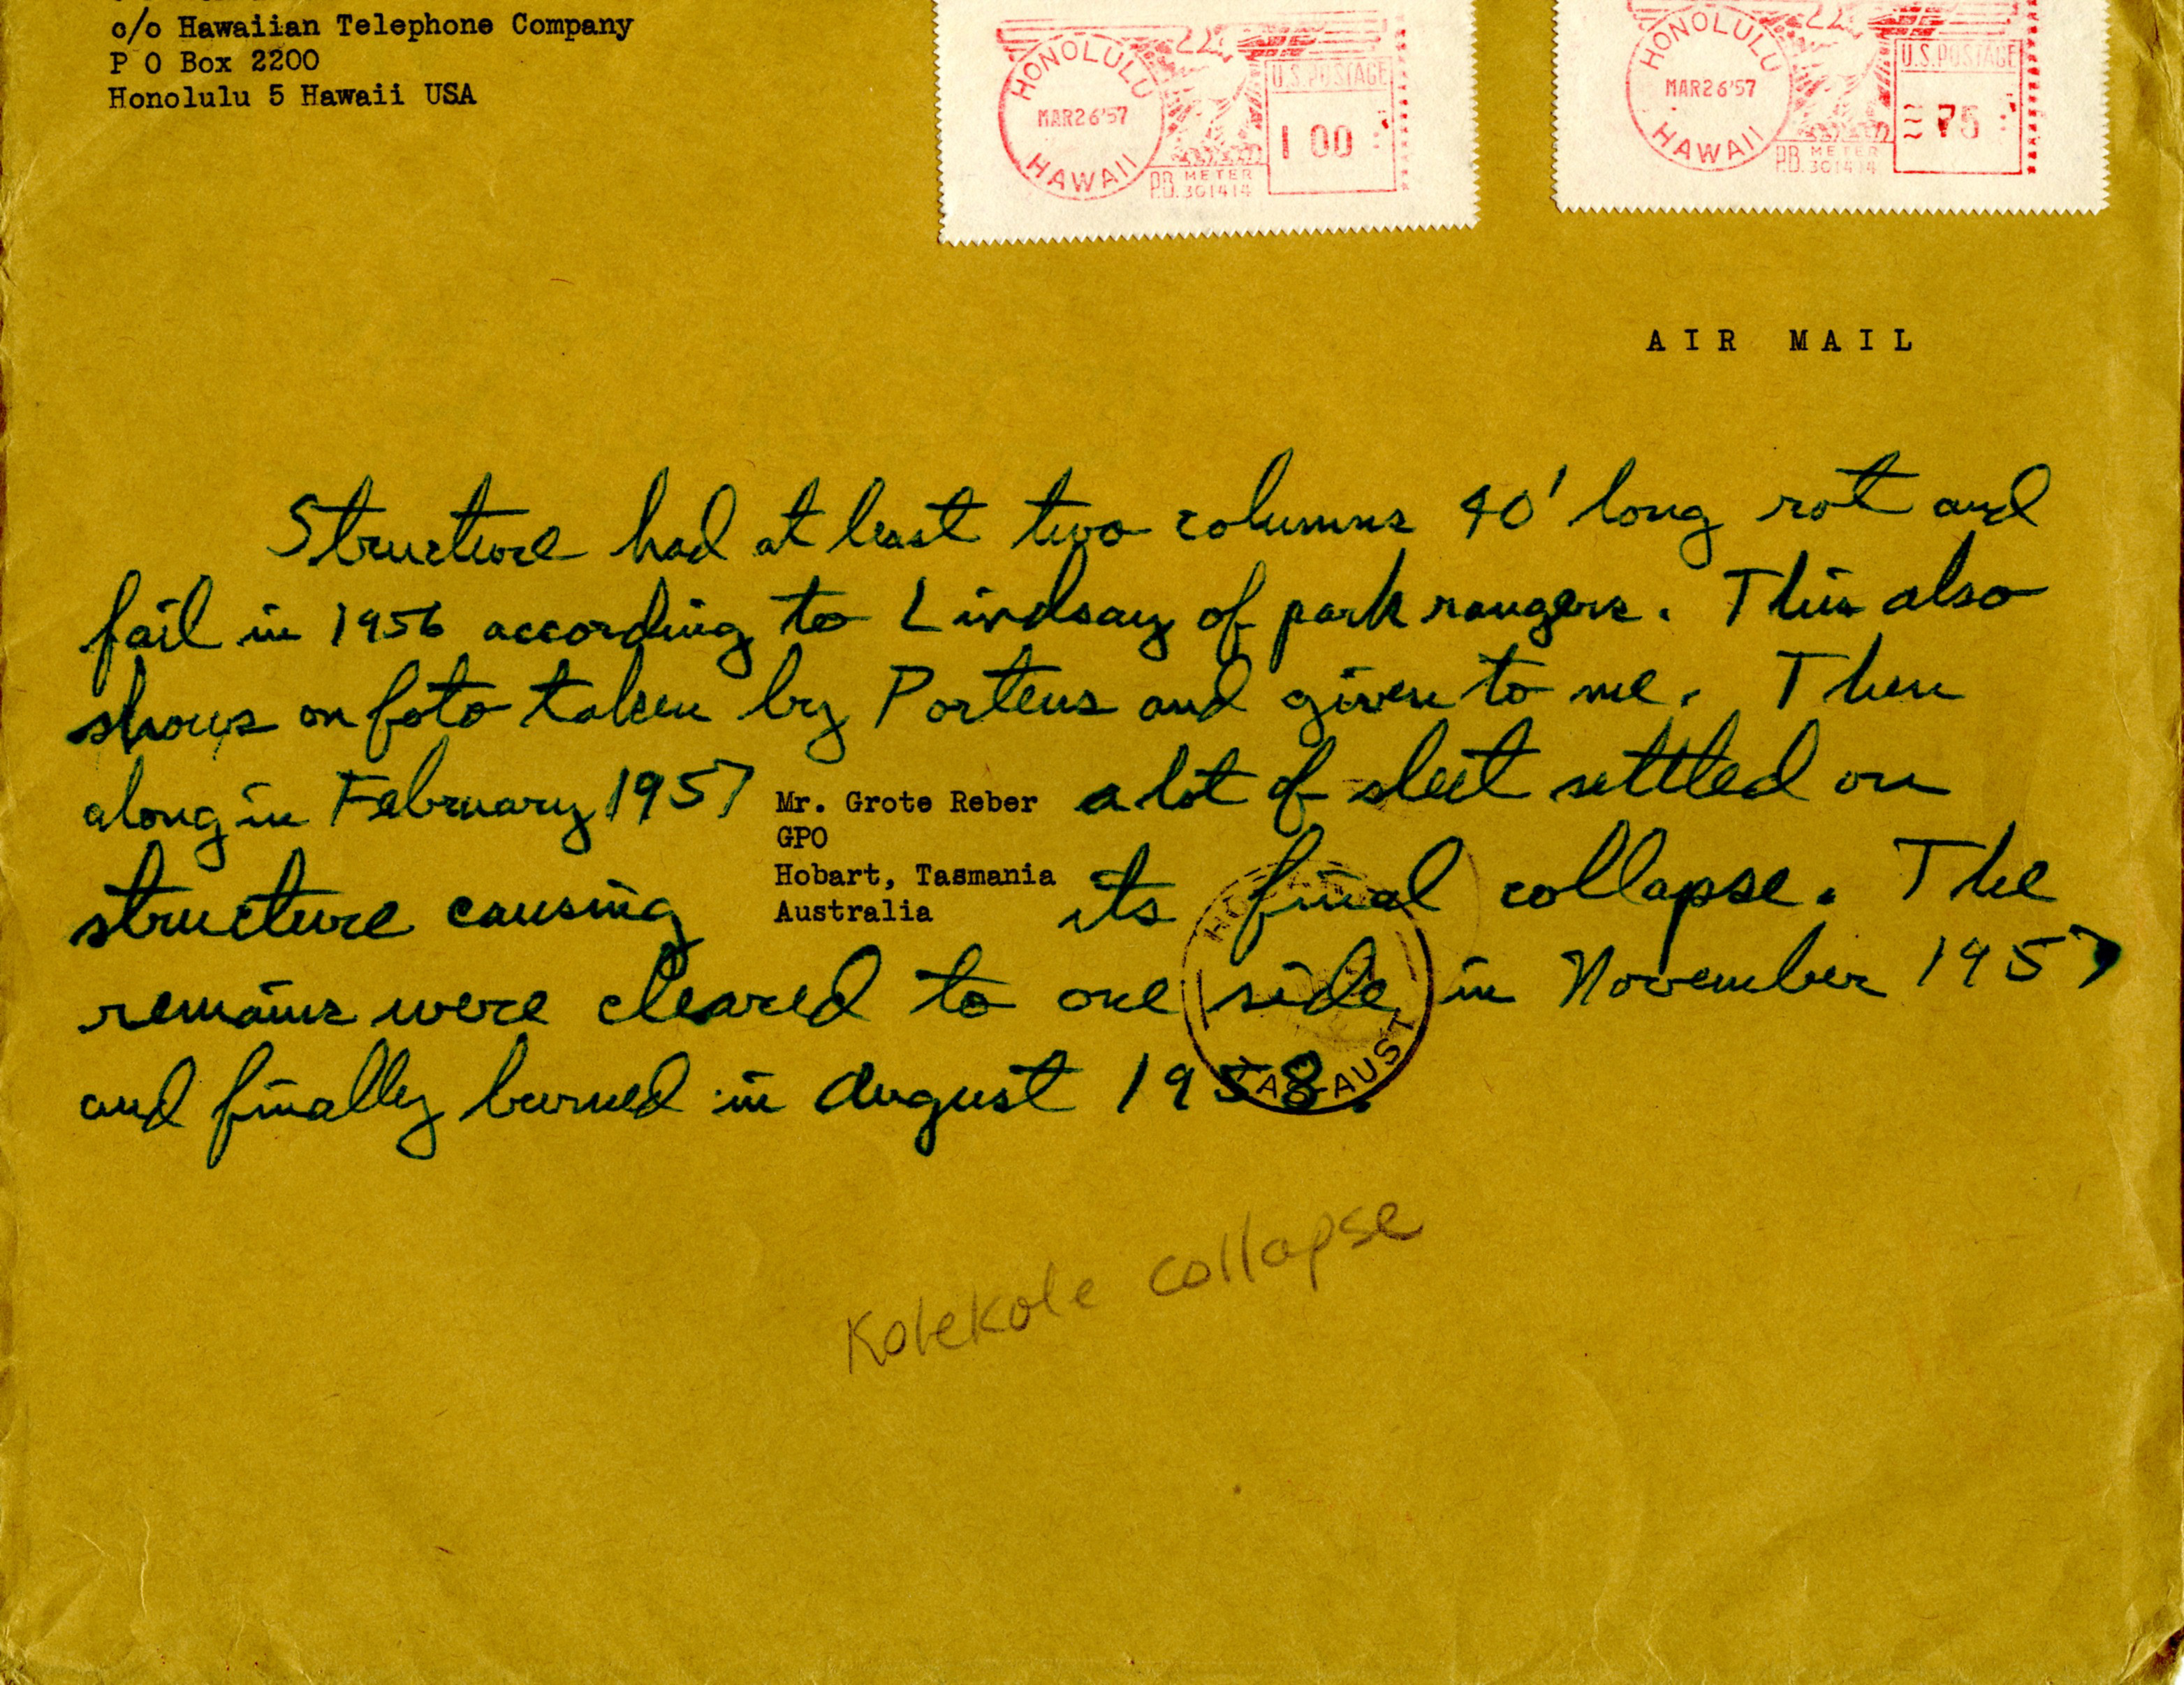 c/o Hawaiian Telephone Company
P O Box 2200
Honolulu 5 Hawaii USA
HONOLULU
MAR 26 '57
HAWAII
P.B. METER
301414
U.S. POSTAGE
1 00
HONOLULU
MAR 26 '57
HAWAII
P.B. METER
301414
U.S. POSTAGE
75
AIR MAIL
Structure had at least two columns 40' long rot and
fail in 1956 according to Lindsay of park rangers. This also
shows on foto taken by Porteus and given to me. Then
along in February 1957 a lot of sleet settled on
structure causing its final collapse. The
remains were cleared to one side in November 1957
and finally burned in August 1958.
Mr. Grote Reber
GPO
Hobart, Tasmania
Australia
TAS-AUST
Kolekole collapse